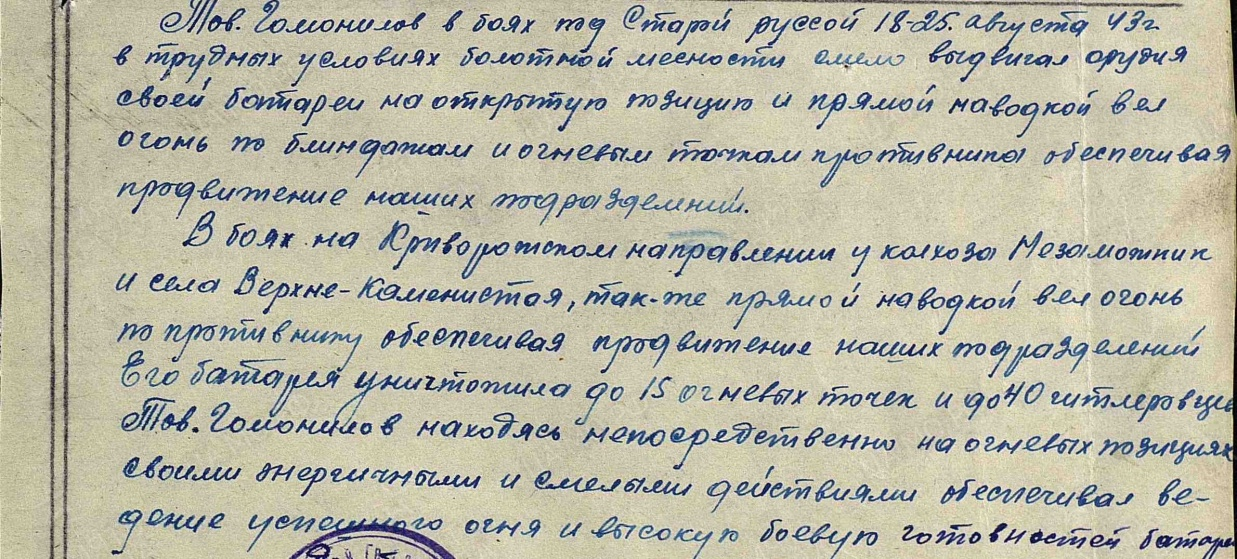 Тов. Гомонилов в боях под Старой руссой 18-25. августа 43г
в трудных условиях болотной месности смело выдвигал орудия
своей батареи на открытую позицию и прямой наводкой вел
огонь по блиндажам и огневым точкам противника обеспечивая
продвижение наших подразделений.
В боях на Криворожском направлении у колхоза Незаможник
и села Верхне-Каменистая, так-же прямой наводкой вел огонь
по противнику обеспечивая продвижение наших подразделений
Его батарея уничтожила до 15 огневых точек и до 40 гитлеровцев
Тов. Гомонилов находясь непосредственно на огневых позициях
своими энергичными и смелыми действиями обеспечивал ве-
дение успешного огня и высокую боевую готовностей батареи